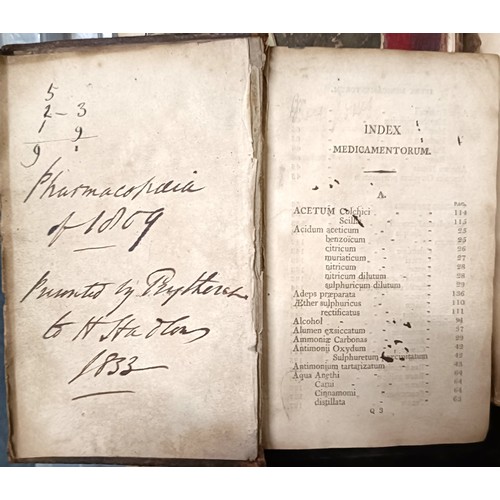 5
2 - 3
1 9
9 :
Pharmacopœia
of 1809
Presented by
to H
1833
INDEX
MEDICAMENTORUM.
A.
PAG.
ACETUM Colchici 114
Scillæ 115
Acidum aceticum 25
benzoicum 25
citricum 26
muriaticum 27
nitricum 28
nitricum dilutum 28
sulphuricum dilutum 29
Adeps præparata 156
Æther sulphuricus 110
rectificatus 111
Alcohol
Alumen exsiccatum 57
Ammoniæ Carbonas
Antimonii Oxydum 42
Sulphuretum 42
Antimonium tartarizatum 42
Aqua Anethi 64
Carui 64
Cinnamomi 64
distillata 63
Q 3